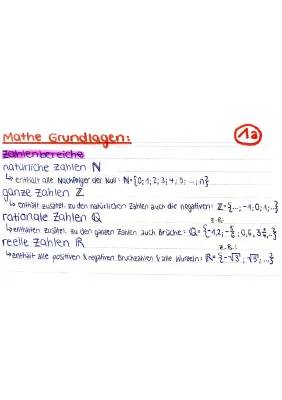 Mathe Grundlagen:
1a
Zahlenbereiche
natürliche Zahlen ℕ
↳ enthält alle Nachfolger der Null: ℕ={0;1;2;3;4;5;...;n}
ganze Zahlen ℤ
↳ enthält zusätzl. zu den natürlichen Zahlen auch die negativen: ℤ={...;-1;0;1;...}
rationale Zahlen ℚ
z.B.:
↳ enthalten zusätzl. zu den ganzen Zahlen auch Brüche: ℚ={-1,2;
reelle Zahlen ℝ
z.B.:
↳ enthält alle positiven & negativen Bruchzahlen & alle Wurzeln: ℝ={-√3; √5;...}